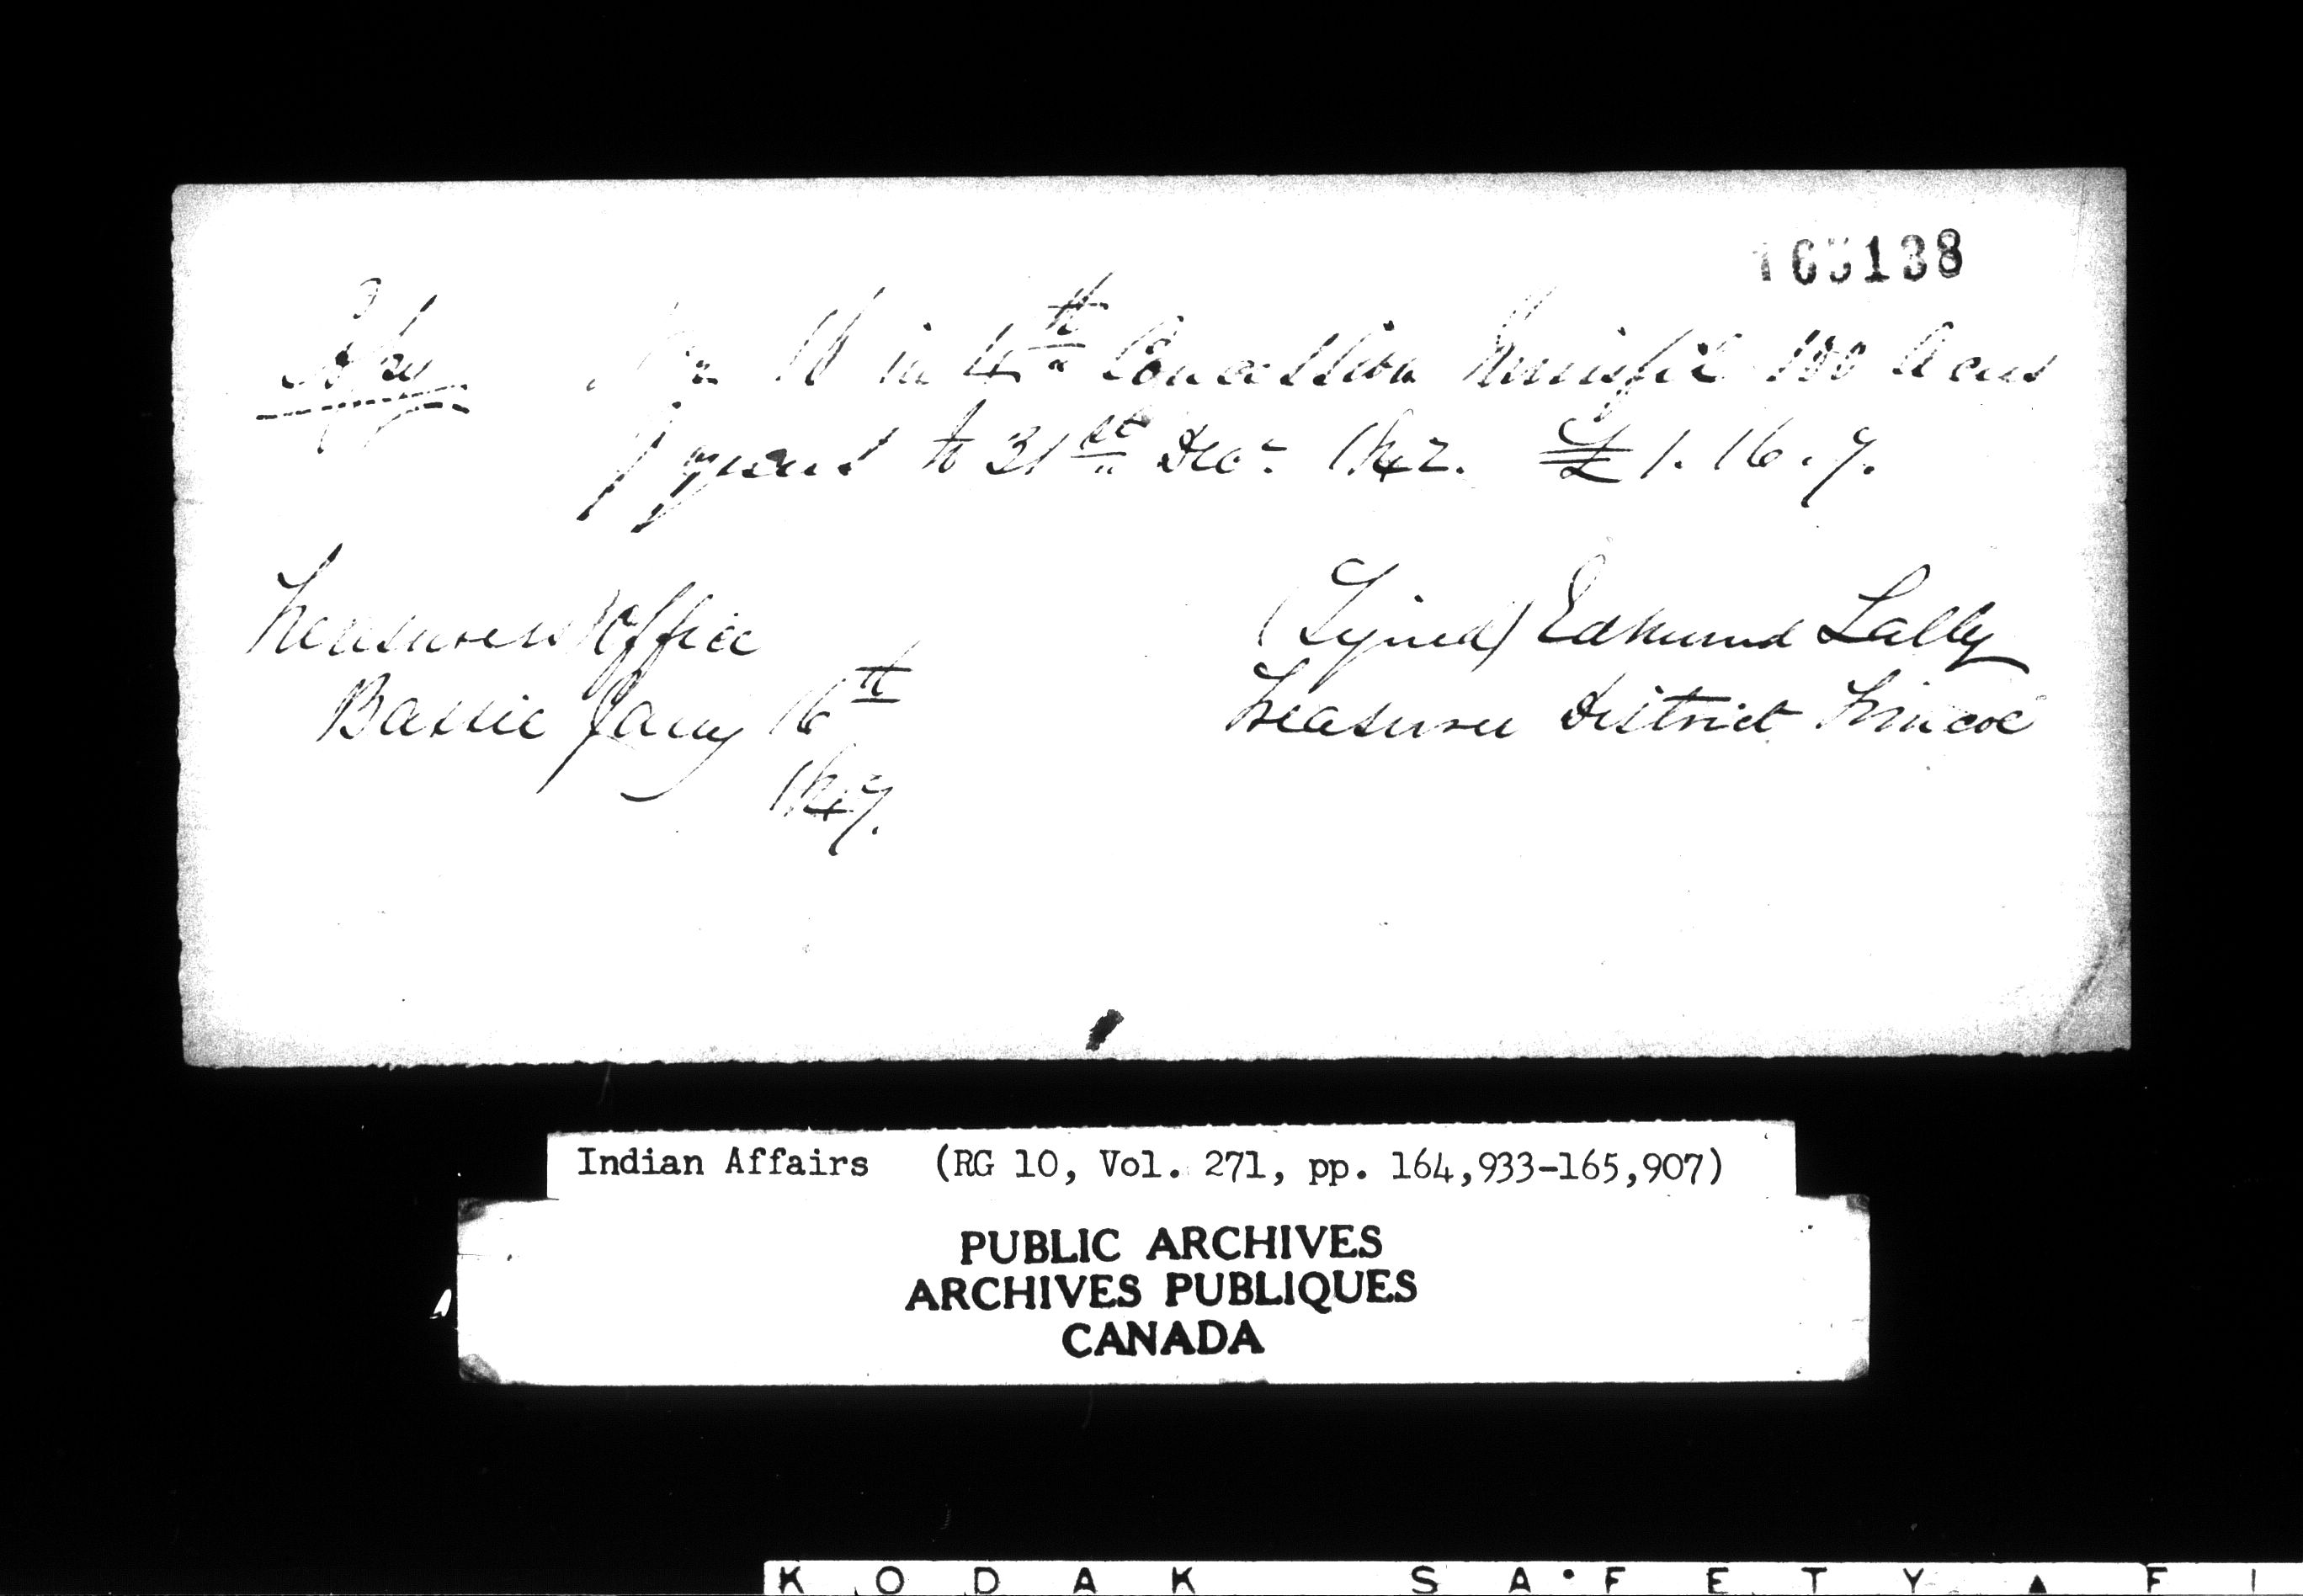 165138
Copy No 10 in 4th Concession Sunnidale 100 Acres
7 years to 31st Decr 1842. £1.16.7.
Treasurers Office
Barrie Jany 16th
1847.
(Signed) Edmund Lally
Treasurer District Simcoe
Indian Affairs (RG 10, Vol. 271, pp. 164,933-165,907)
PUBLIC ARCHIVES
ARCHIVES PUBLIQUES
CANADA
KODAK SAFETY FI